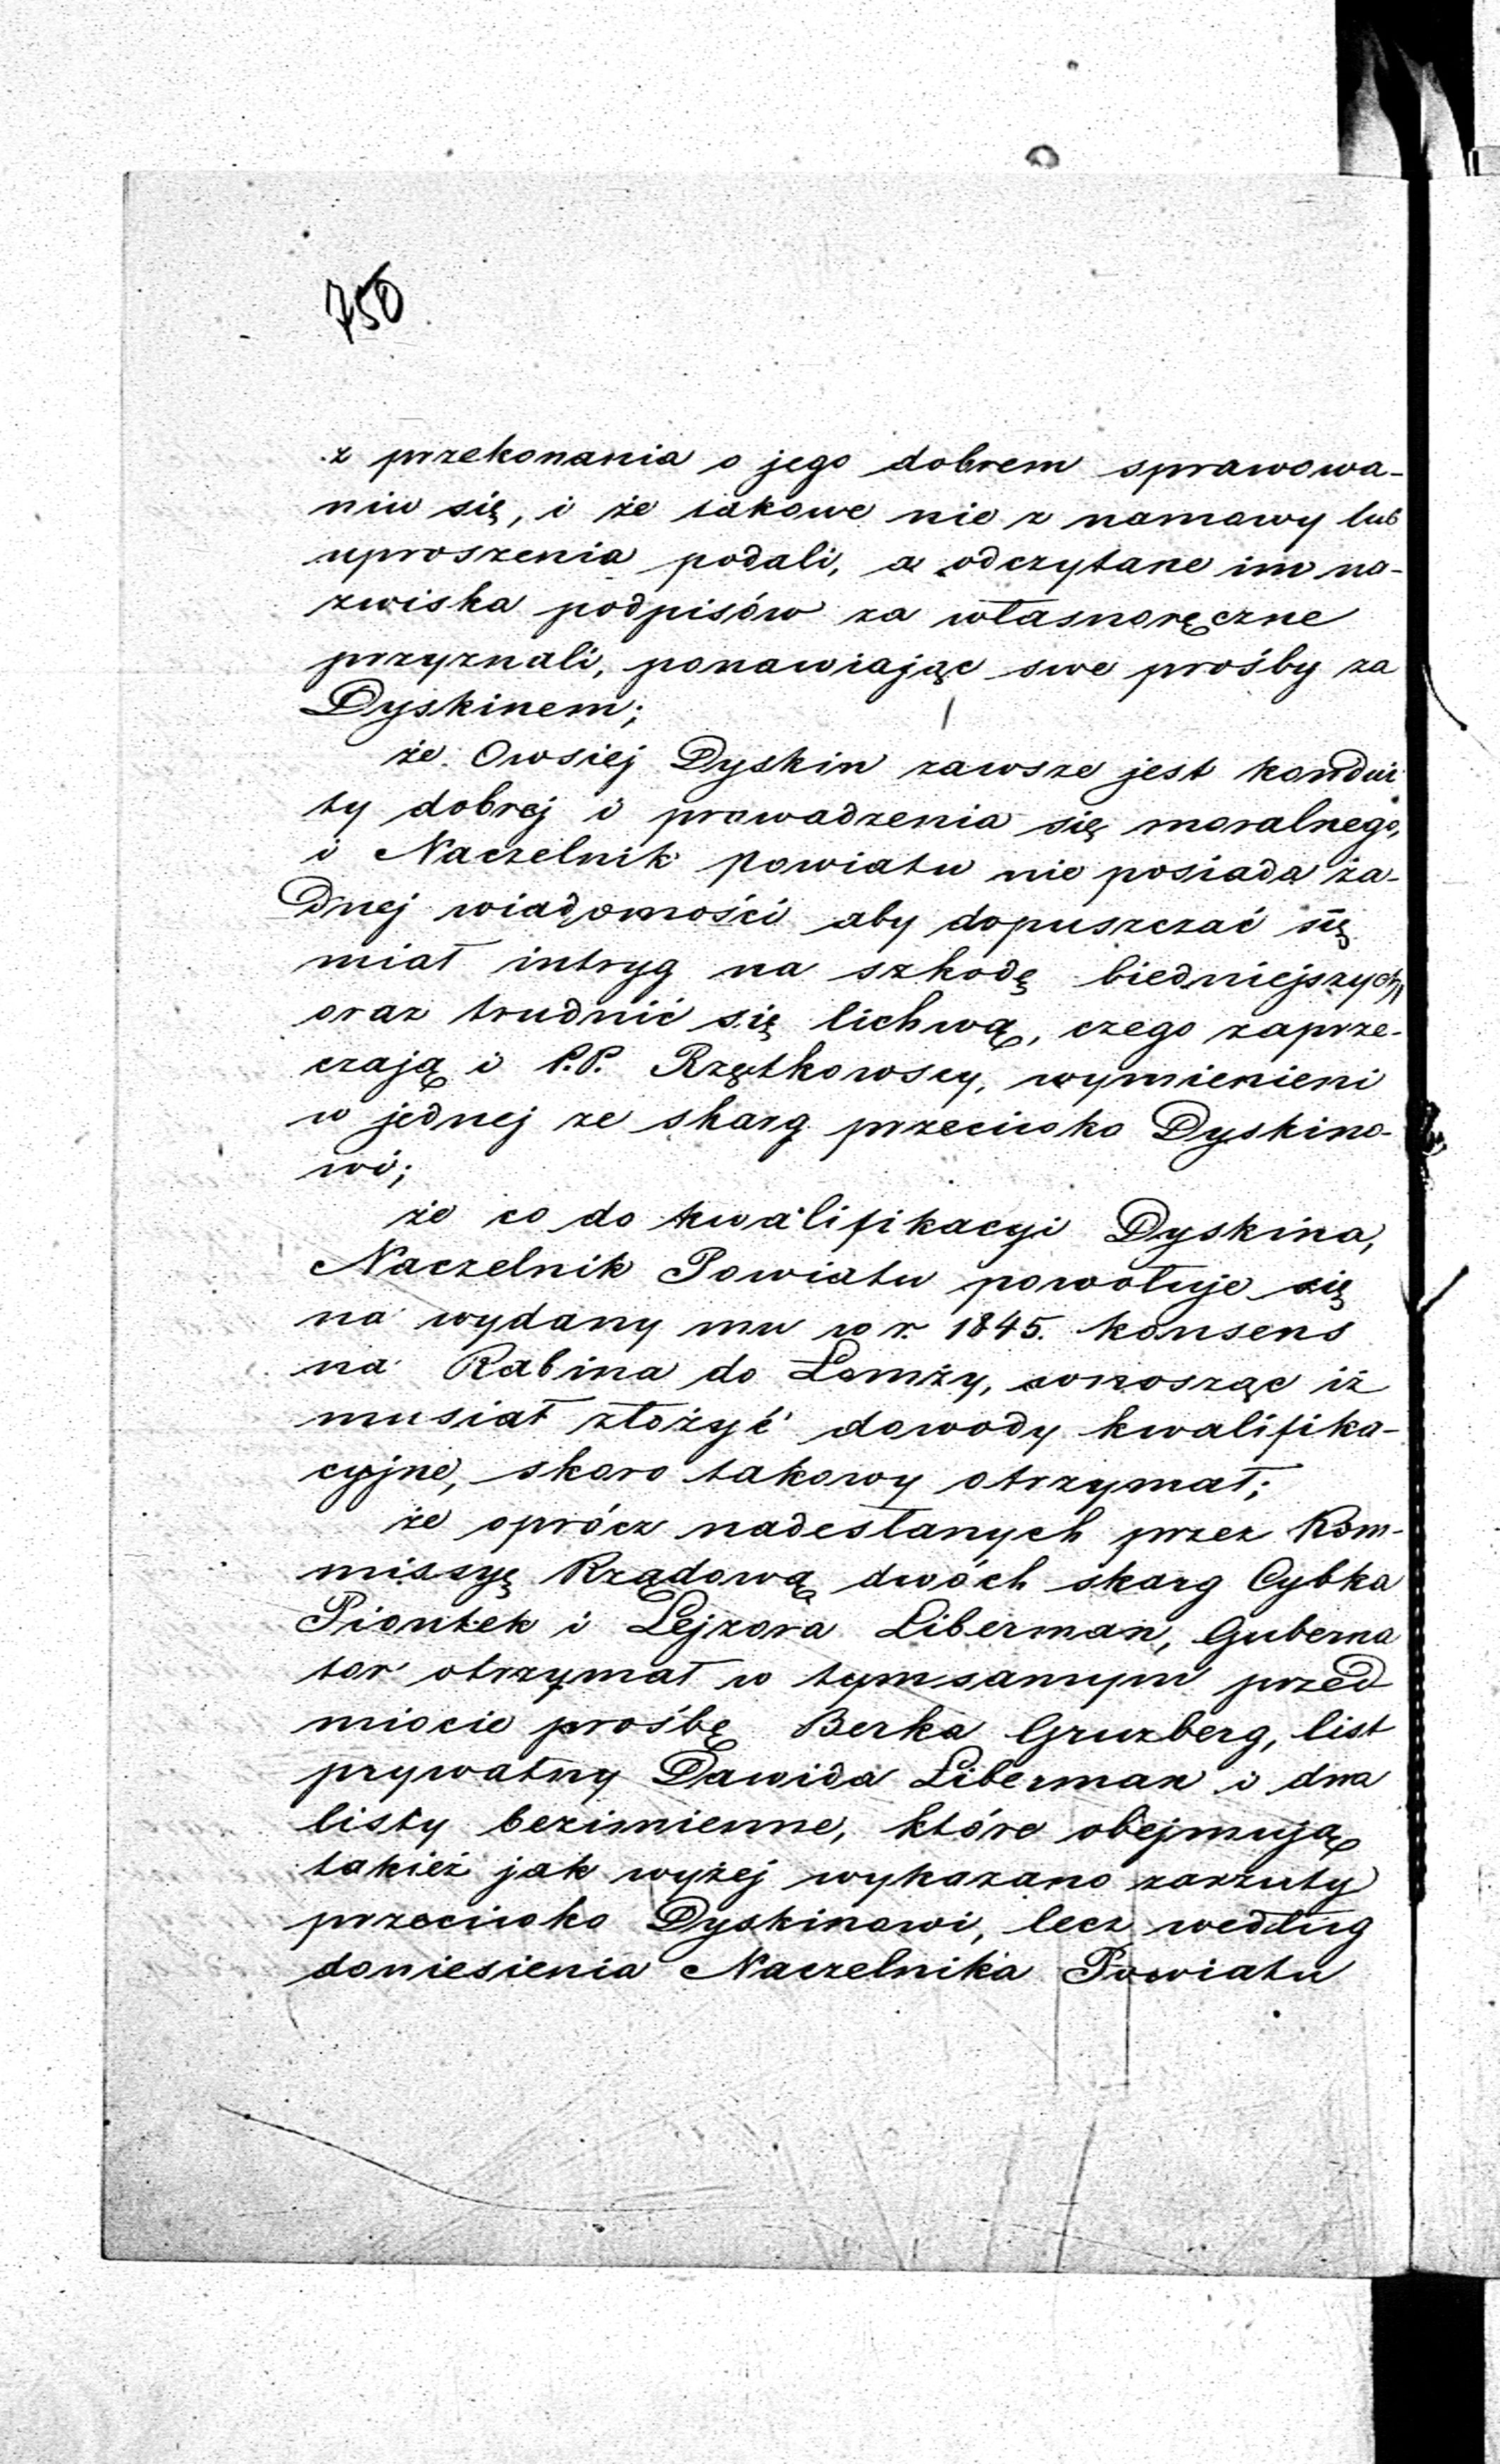 750
z przekonania o jego dobrem sprawowa-
niu się, i że takowe nie z namowy lub
uproszenia podali, a odczytane im na-
zwiska podpisów za własnoręczne
przyznali, ponawiając swe prośby za
Dyskinem;
że Owsiej Dyskin zawsze jest kondui
ty dobrej i prowadzenia się moralnego,
i Naczelnik powiatu nie posiada ża-
dnej wiadomości aby dopuszczać się
miał intryg na szkodę biedniejszych,
oraz trudnić się lichwą, czego zaprze-
czają i P.P. Rzętkowscy, wymienieni
w jednej ze skarg przeciwko Dyskino-
wi;
że co do kwalifikacyi Dyskina,
Naczelnik Powiatu powołuje się
na wydany mu w r. 1845. konsens
na Rabina do Łomży, wnosząc iż
musiał złożyć dowody kwalifika-
cyjne, skoro takowy otrzymał;
że oprócz nadesłanych przez Kom-
missyę Rządową dwóch skarg Cybka
Piontek i Lejzora Liberman, Guberna
tor otrzymał w tymsamym przed
miocie prośbę Berka Gruzberg, list
prywatny Dawida Liberman i dwa
listy bezimienne, które obejmują
takież jak wyżej wykazano zarzuty
przeciwko Dyskinowi, lecz według
doniesienia Naczelnika Powiatu